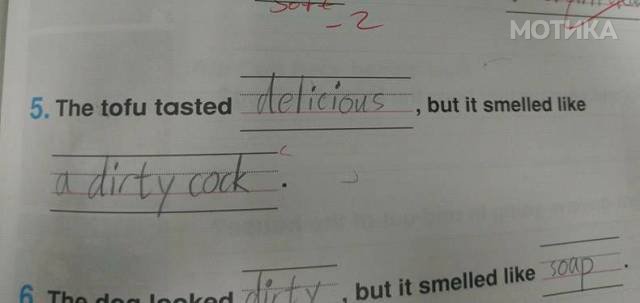 soft
-2
МОТИКА
5. The tofu tasted delicious, but it smelled like
a dirty cock.
6 The dog looked dirty, but it smelled like soap.